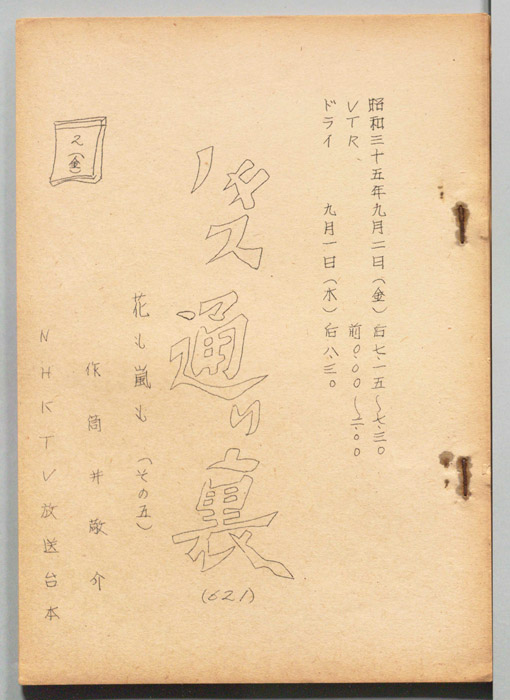 昭和三十五年九月二日(金)后七・一五〜七・三〇
VTR 前0:00〜二:00
ドライ 九月一日(木)后八・三〇
バス通り裏
(621)
花も嵐も (その五)
作 筒井敬介
NHKTV放送台本
2(金)